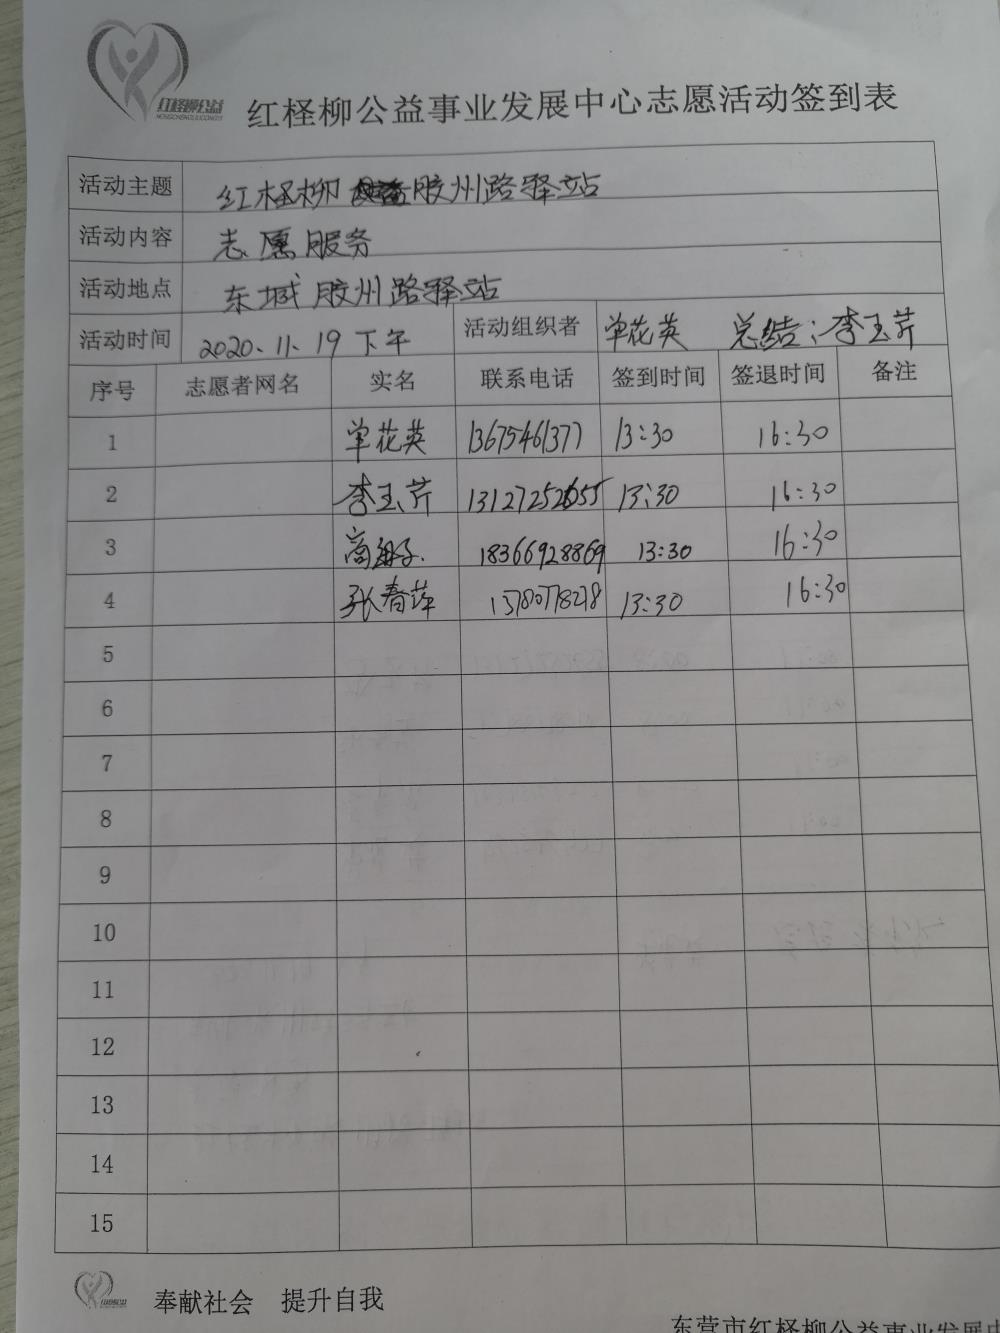 红柽柳公益
HONGCHENGLIUGONGYI
红柽柳公益事业发展中心志愿活动签到表
活动主题 红柽柳 胶州路驿站
活动内容 志愿服务
活动地点 东城胶州路驿站
活动时间 2020.11.19下午 活动组织者 单花英 总结:李玉芹
序号 志愿者网名 实名 联系电话 签到时间 签退时间 备注
1 单花英 13675461377 13:30 16:30
2 李玉芹 13:30 16:30
3 18366928869 13:30 16:30
4 张春萍 13:30 16:30
5
6
7
8
9
10
11
12
13
14
15
红柽柳公益
奉献社会 提升自我
东营市红柽柳公益事业发展中